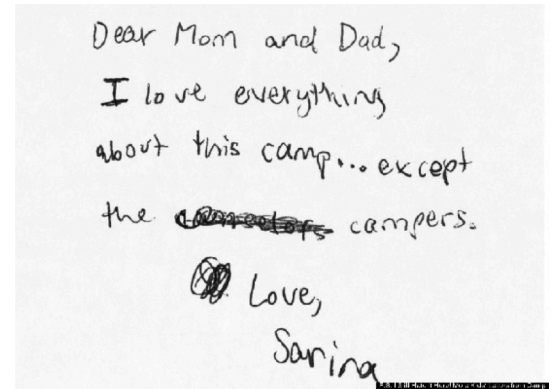 Dear Mom and Dad,
I love everything
about this camp... except
the campers.
Love,
Sarina